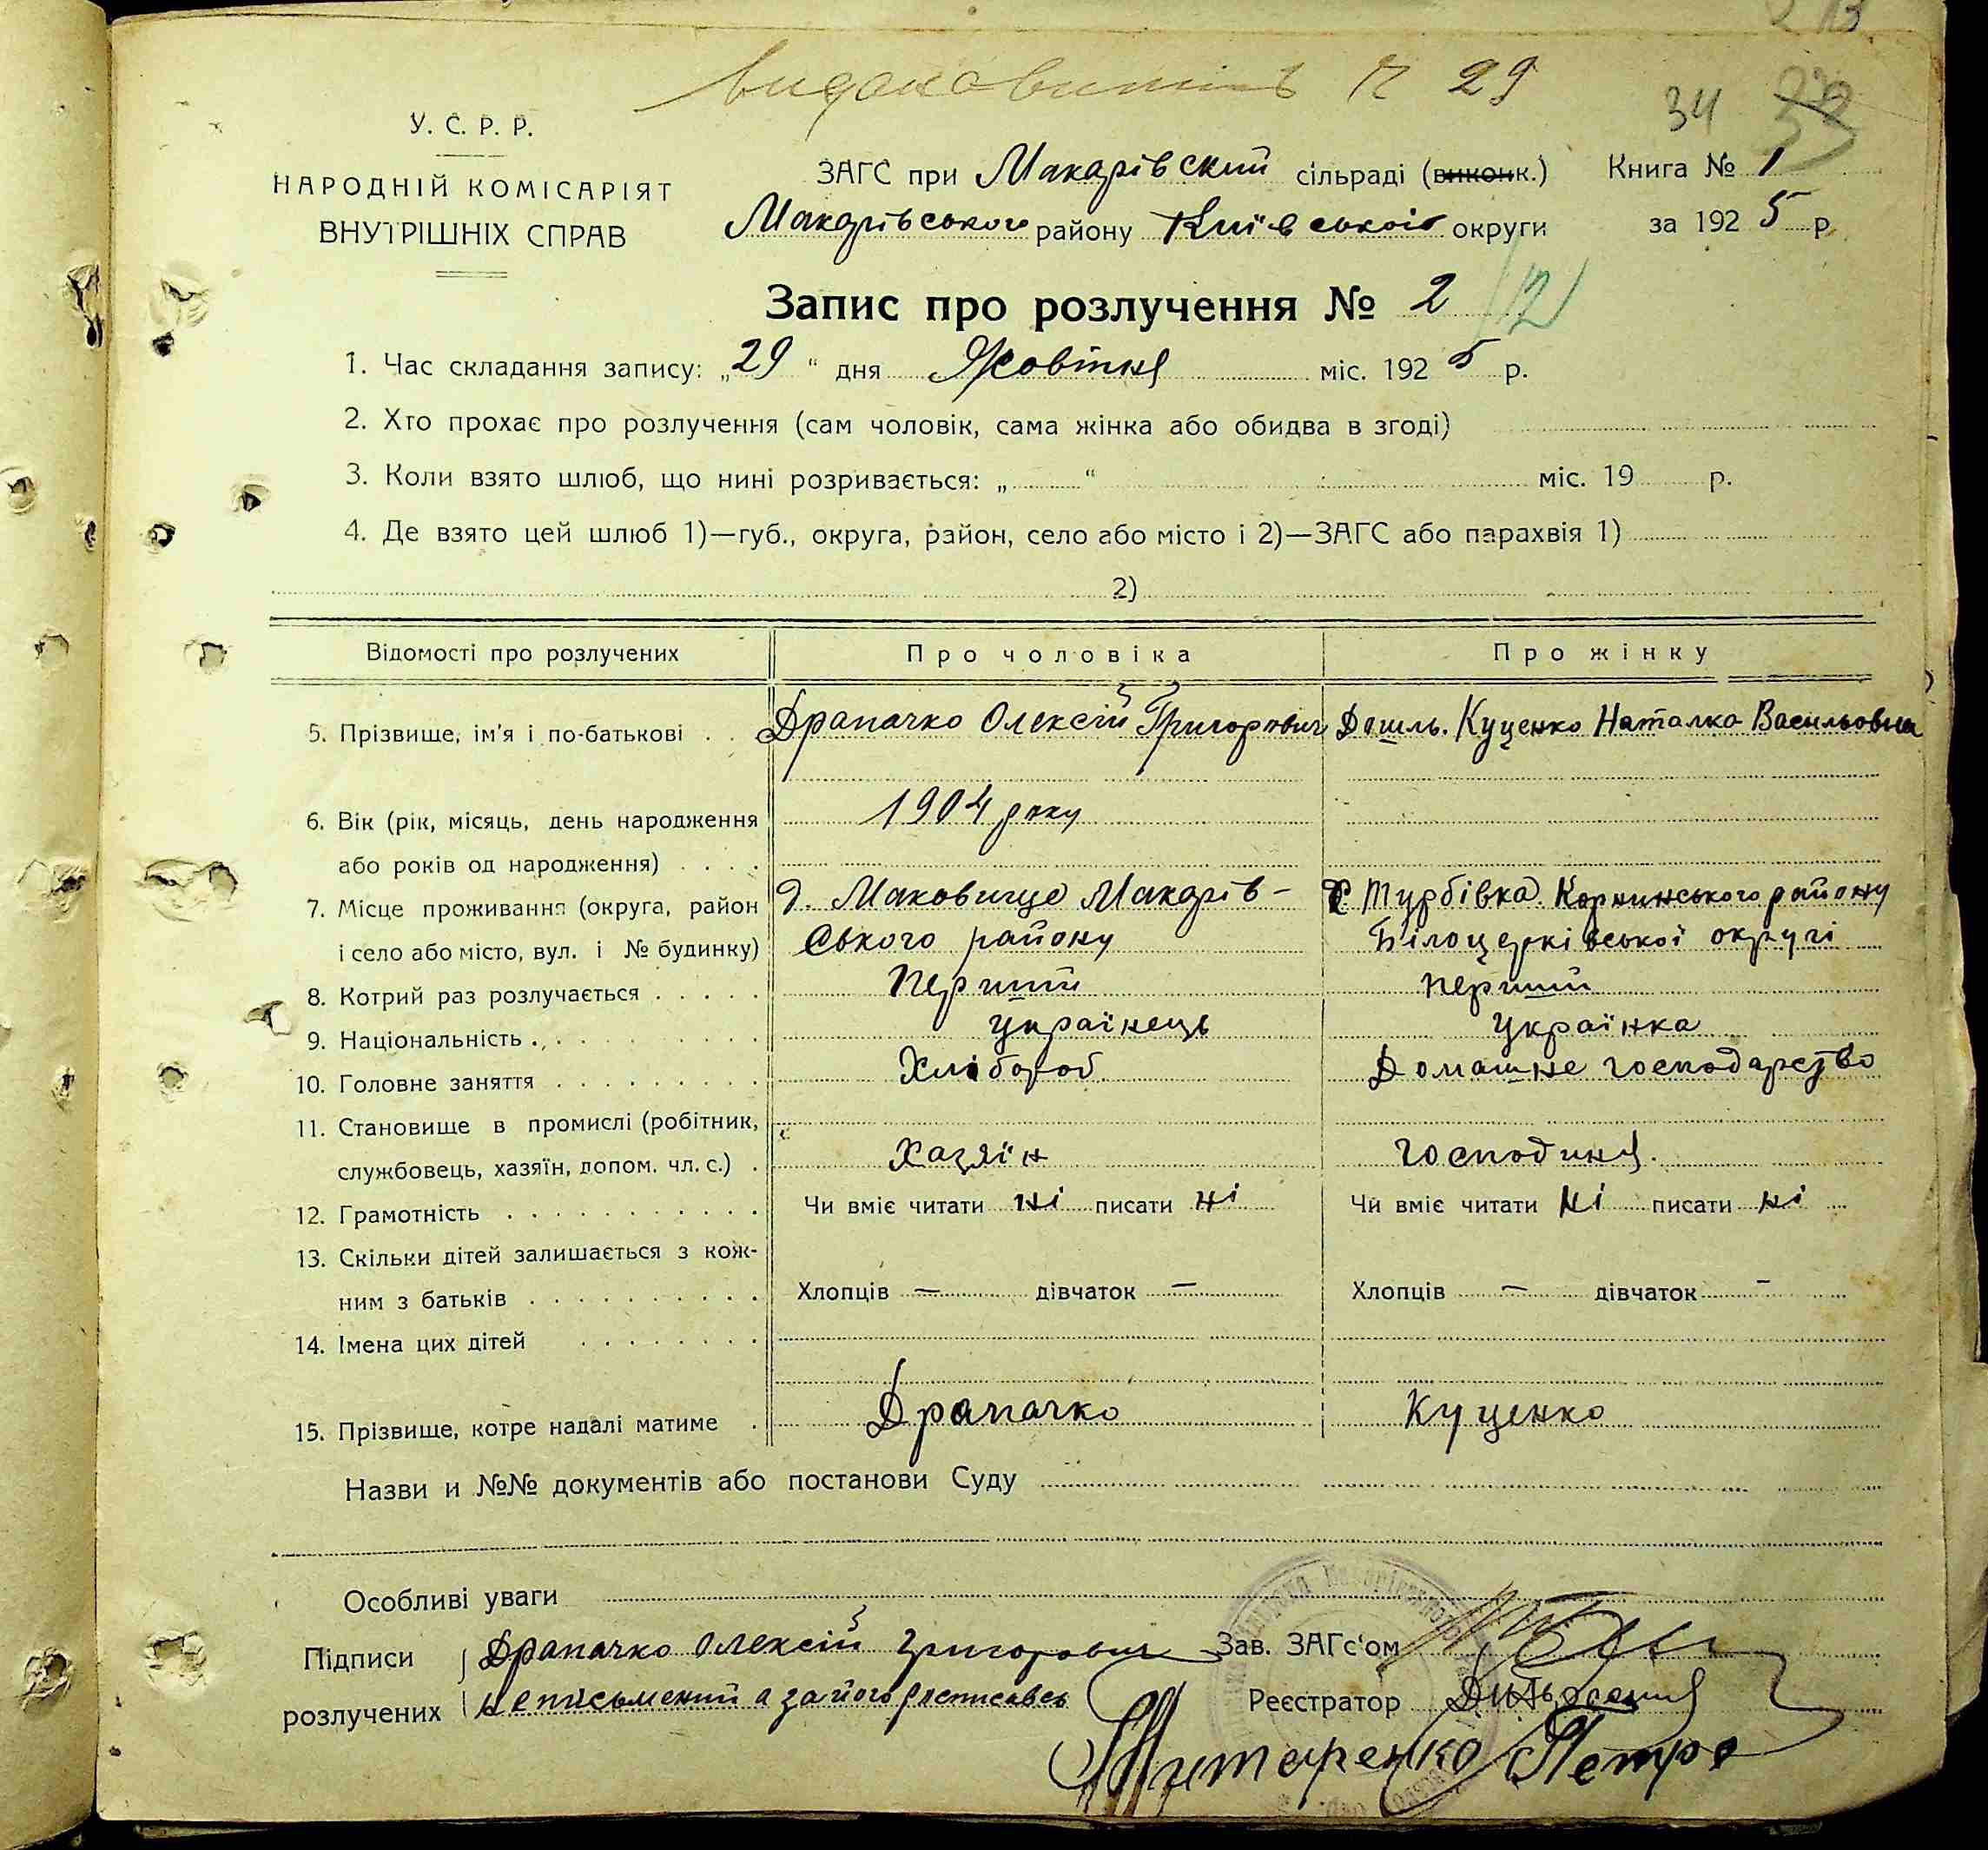 № 29
34
У. С. Р. Р.
НАРОДНІЙ КОМІСАРІЯТ
ВНУТРІШНІХ СПРАВ
ЗАГС при Макарівский сільраді (виконк.) Книга № 1
Макарівського району Київської округи за 1925 р.
Запис про розлучення № 2
1. Час складання запису: „29“ дня Жовтня міс. 1925 р.
2. Хто прохає про розлучення (сам чоловік, сама жінка або обидва в згоді)
3. Коли взято шлюб, що нині розривається: „ “ міс. 19 р.
4. Де взято цей шлюб 1)—губ., округа, район, село або місто і 2)—ЗАГС або парахвія 1)
2)
Відомості про розлучених Про чоловіка Про жінку
5. Прізвище, ім'я і по-батькові . . Драпачко Олексій Григорович Дошль. Куценко Наталка Васильовна
6. Вік (рік, місяць, день народження 1904 року
або років од народження) . . . .
7. Місце проживання (округа, район д. Маковище Макарів- с. Турбівка Корнинського району
і село або місто, вул. і № будинку) ського району Білоцерківської округі
8. Котрий раз розлучається . . . . . Перший перший
9. Національність . . . . . . . . . українець українка
10. Головне заняття . . . . . . . . . Хлібороб Домашне господарство
11. Становище в промислі (робітник,
службовець, хазяїн, допом. чл. с.) . Хазяїн господиня.
12. Грамотність . . . . . . . . . . . Чи вміє читати ні писати ні Чи вміє читати ні писати ні
13. Скільки дітей залишається з кож-
ним з батьків . . . . . . . . . . Хлопців — дівчаток — Хлопців — дівчаток —
14. Імена цих дітей . . . . . . . .
15. Прізвище, котре надалі матиме . Драпачко Куценко
Назви и №№ документів або постанови Суду
Особливі уваги
Підписи Драпачко Олексій Григорович Зав. ЗАГс'ом
розлучених неписьмений а за його росписавсь Реєстратор
Титаренко Петро